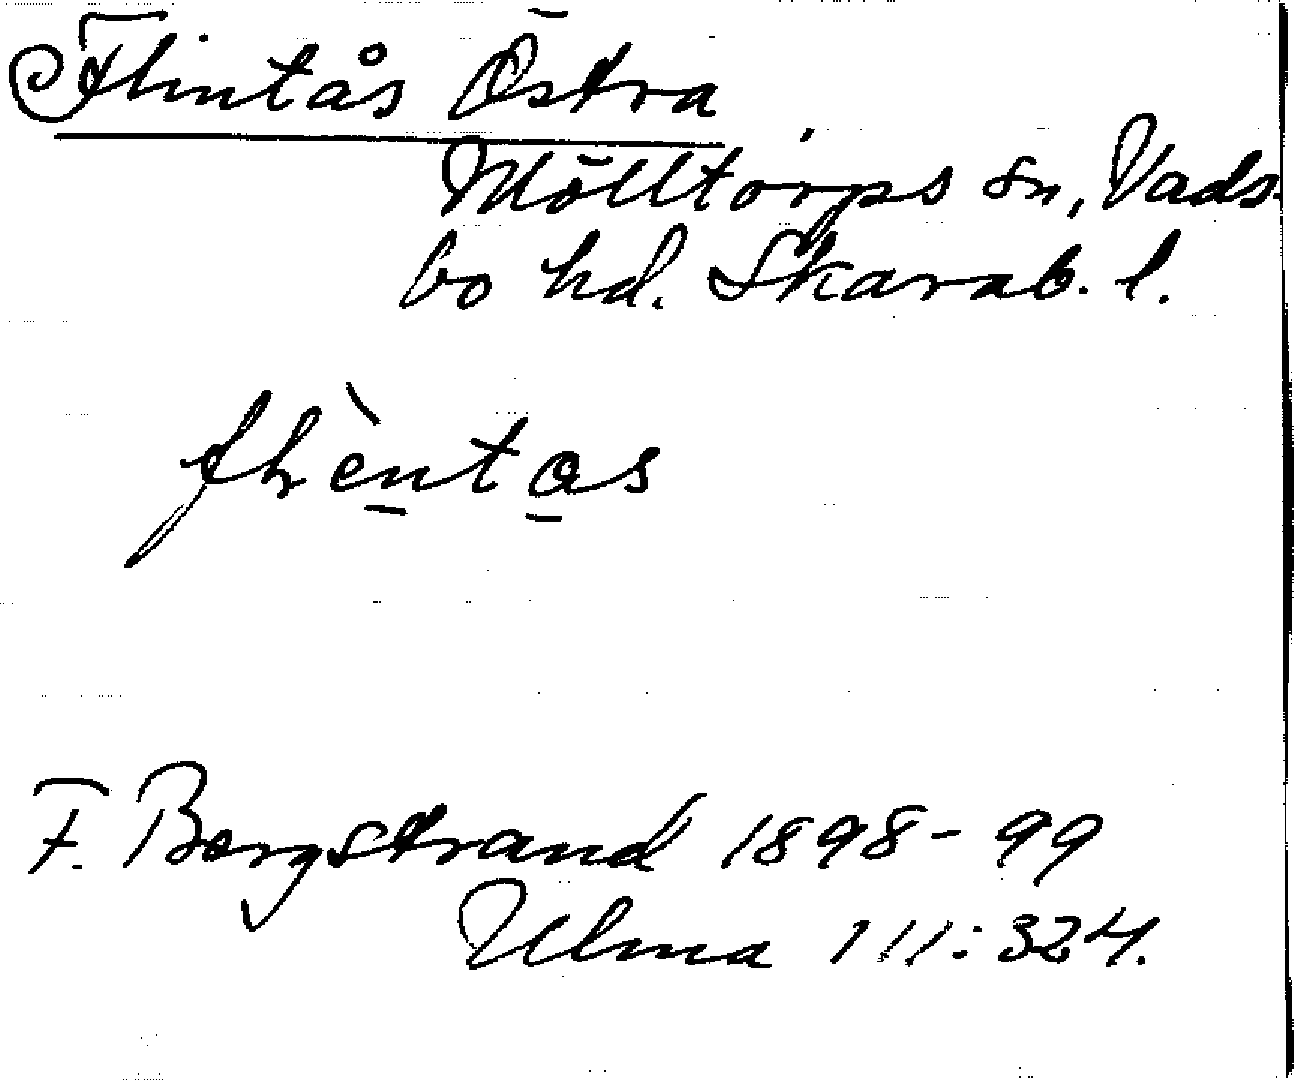 Flintås Östra
Mölltorps sn, Vads-
bo hd. Skarab. l.
F. Bergstrand 1898-99
Ulma 111:324.